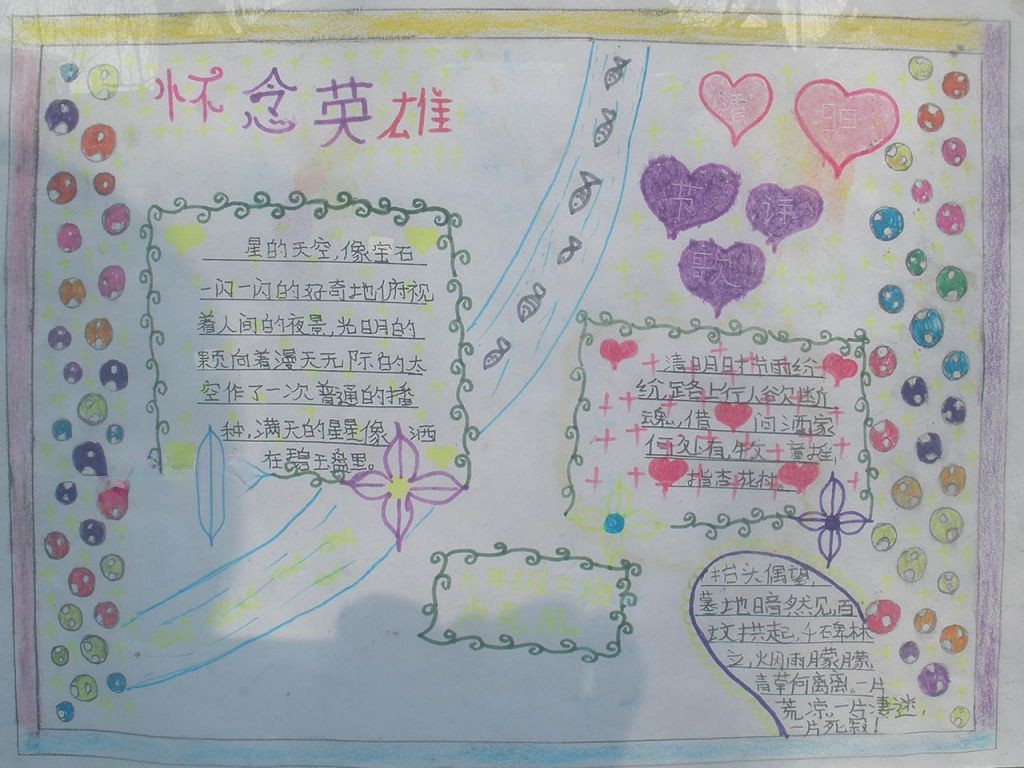 怀念英雄
清明
节诗
歌
星的天空,像宝石
一闪一闪的好奇地俯视
着人间的夜景,光明月的
颗向着漫天无际的太
空作了一次普通的播
种,满天的星星像洒
在碧玉盘里。
清明时节雨纷
纷,路上行人欲断
魂,借问酒家
何处有,牧童摇,
指杏花村。
抬头偶望,
墓地暗然见,百
坟拱起,千碑林
立,烟雨朦朦,
青草何离离。一片
荒凉,一片凄迷,
一片死寂!